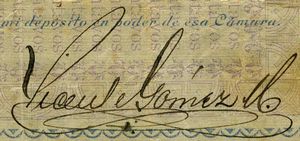 mi depósito en poder de esa Cámara.
Vicente Gómez M.